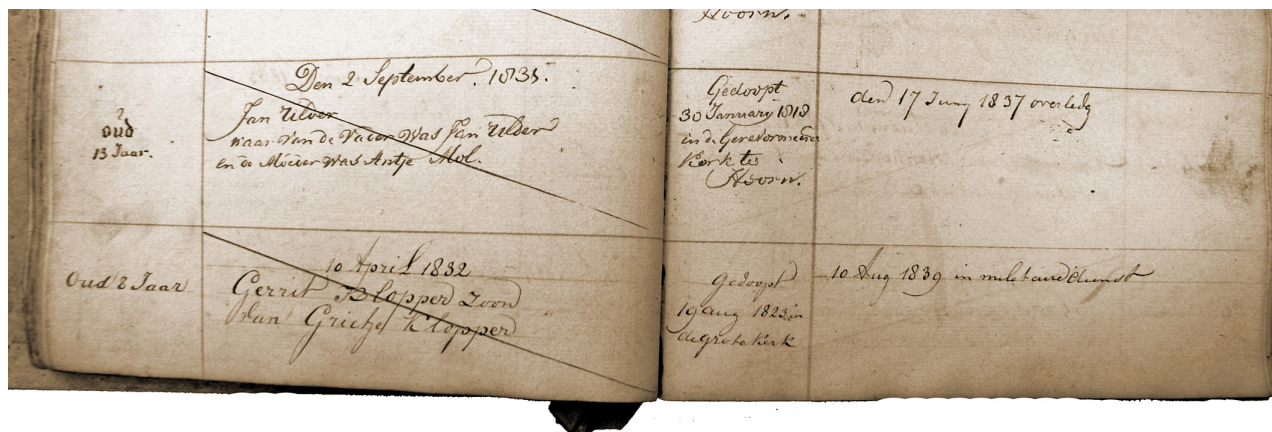 Hoorn.
Den 2 September. 1831.
oud
13 Jaar.
Jan Ulder
waar van de Vader Was Jan Ulder
en de Moeder Was Antje Mol.
Gedoopt
30 January 1818
in de Gereformeerde
Kerk te
Hoorn.
den 17 Juny 1837 overledg
Oud 8 Jaar
10 April 1832
Gerrit Blopper Zoon
Van Grietje Klopper
Gedoopt
19 Aug 1823 in
de grote Kerk
10 Aug 1839 in militairedienst